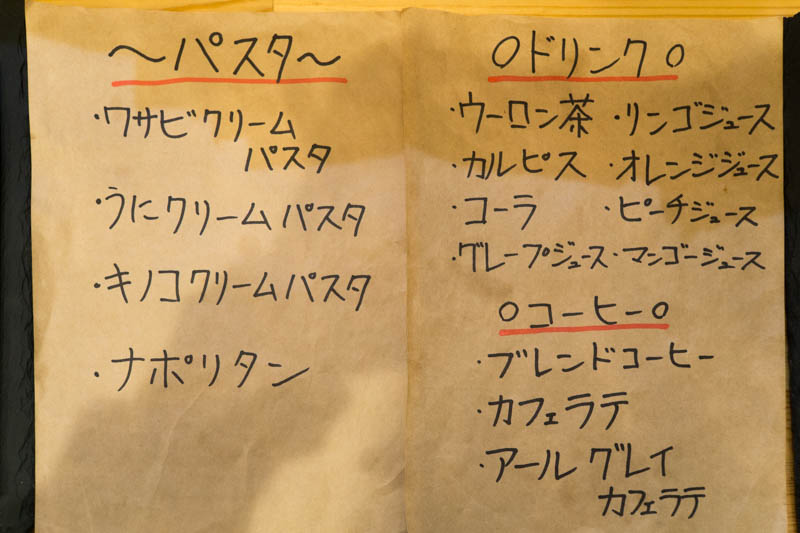 〜パスタ〜
・ワサビクリーム
パスタ
・うにクリームパスタ
・キノコクリームパスタ
・ナポリタン
○ドリンク○
・ウーロン茶 ・リンゴジュース
・カルピス ・オレンジジュース
・コーラ ・ピーチジュース
・グレープジュース ・マンゴージュース
○コーヒー○
・ブレンドコーヒー
・カフェラテ
・アール グレイ
カフェラテ